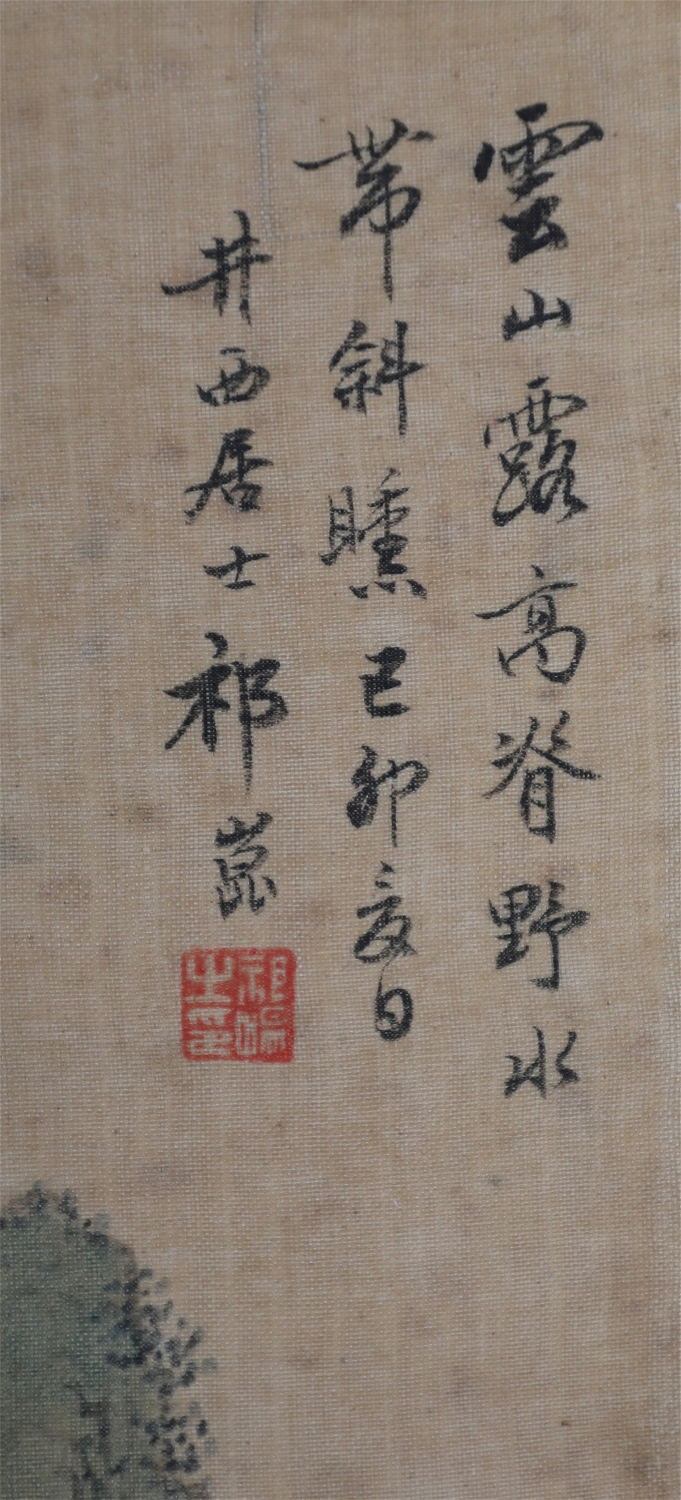 雲山露高脊野水
帶斜曛己卯夏日
井西居士祁崑
祁崑之印